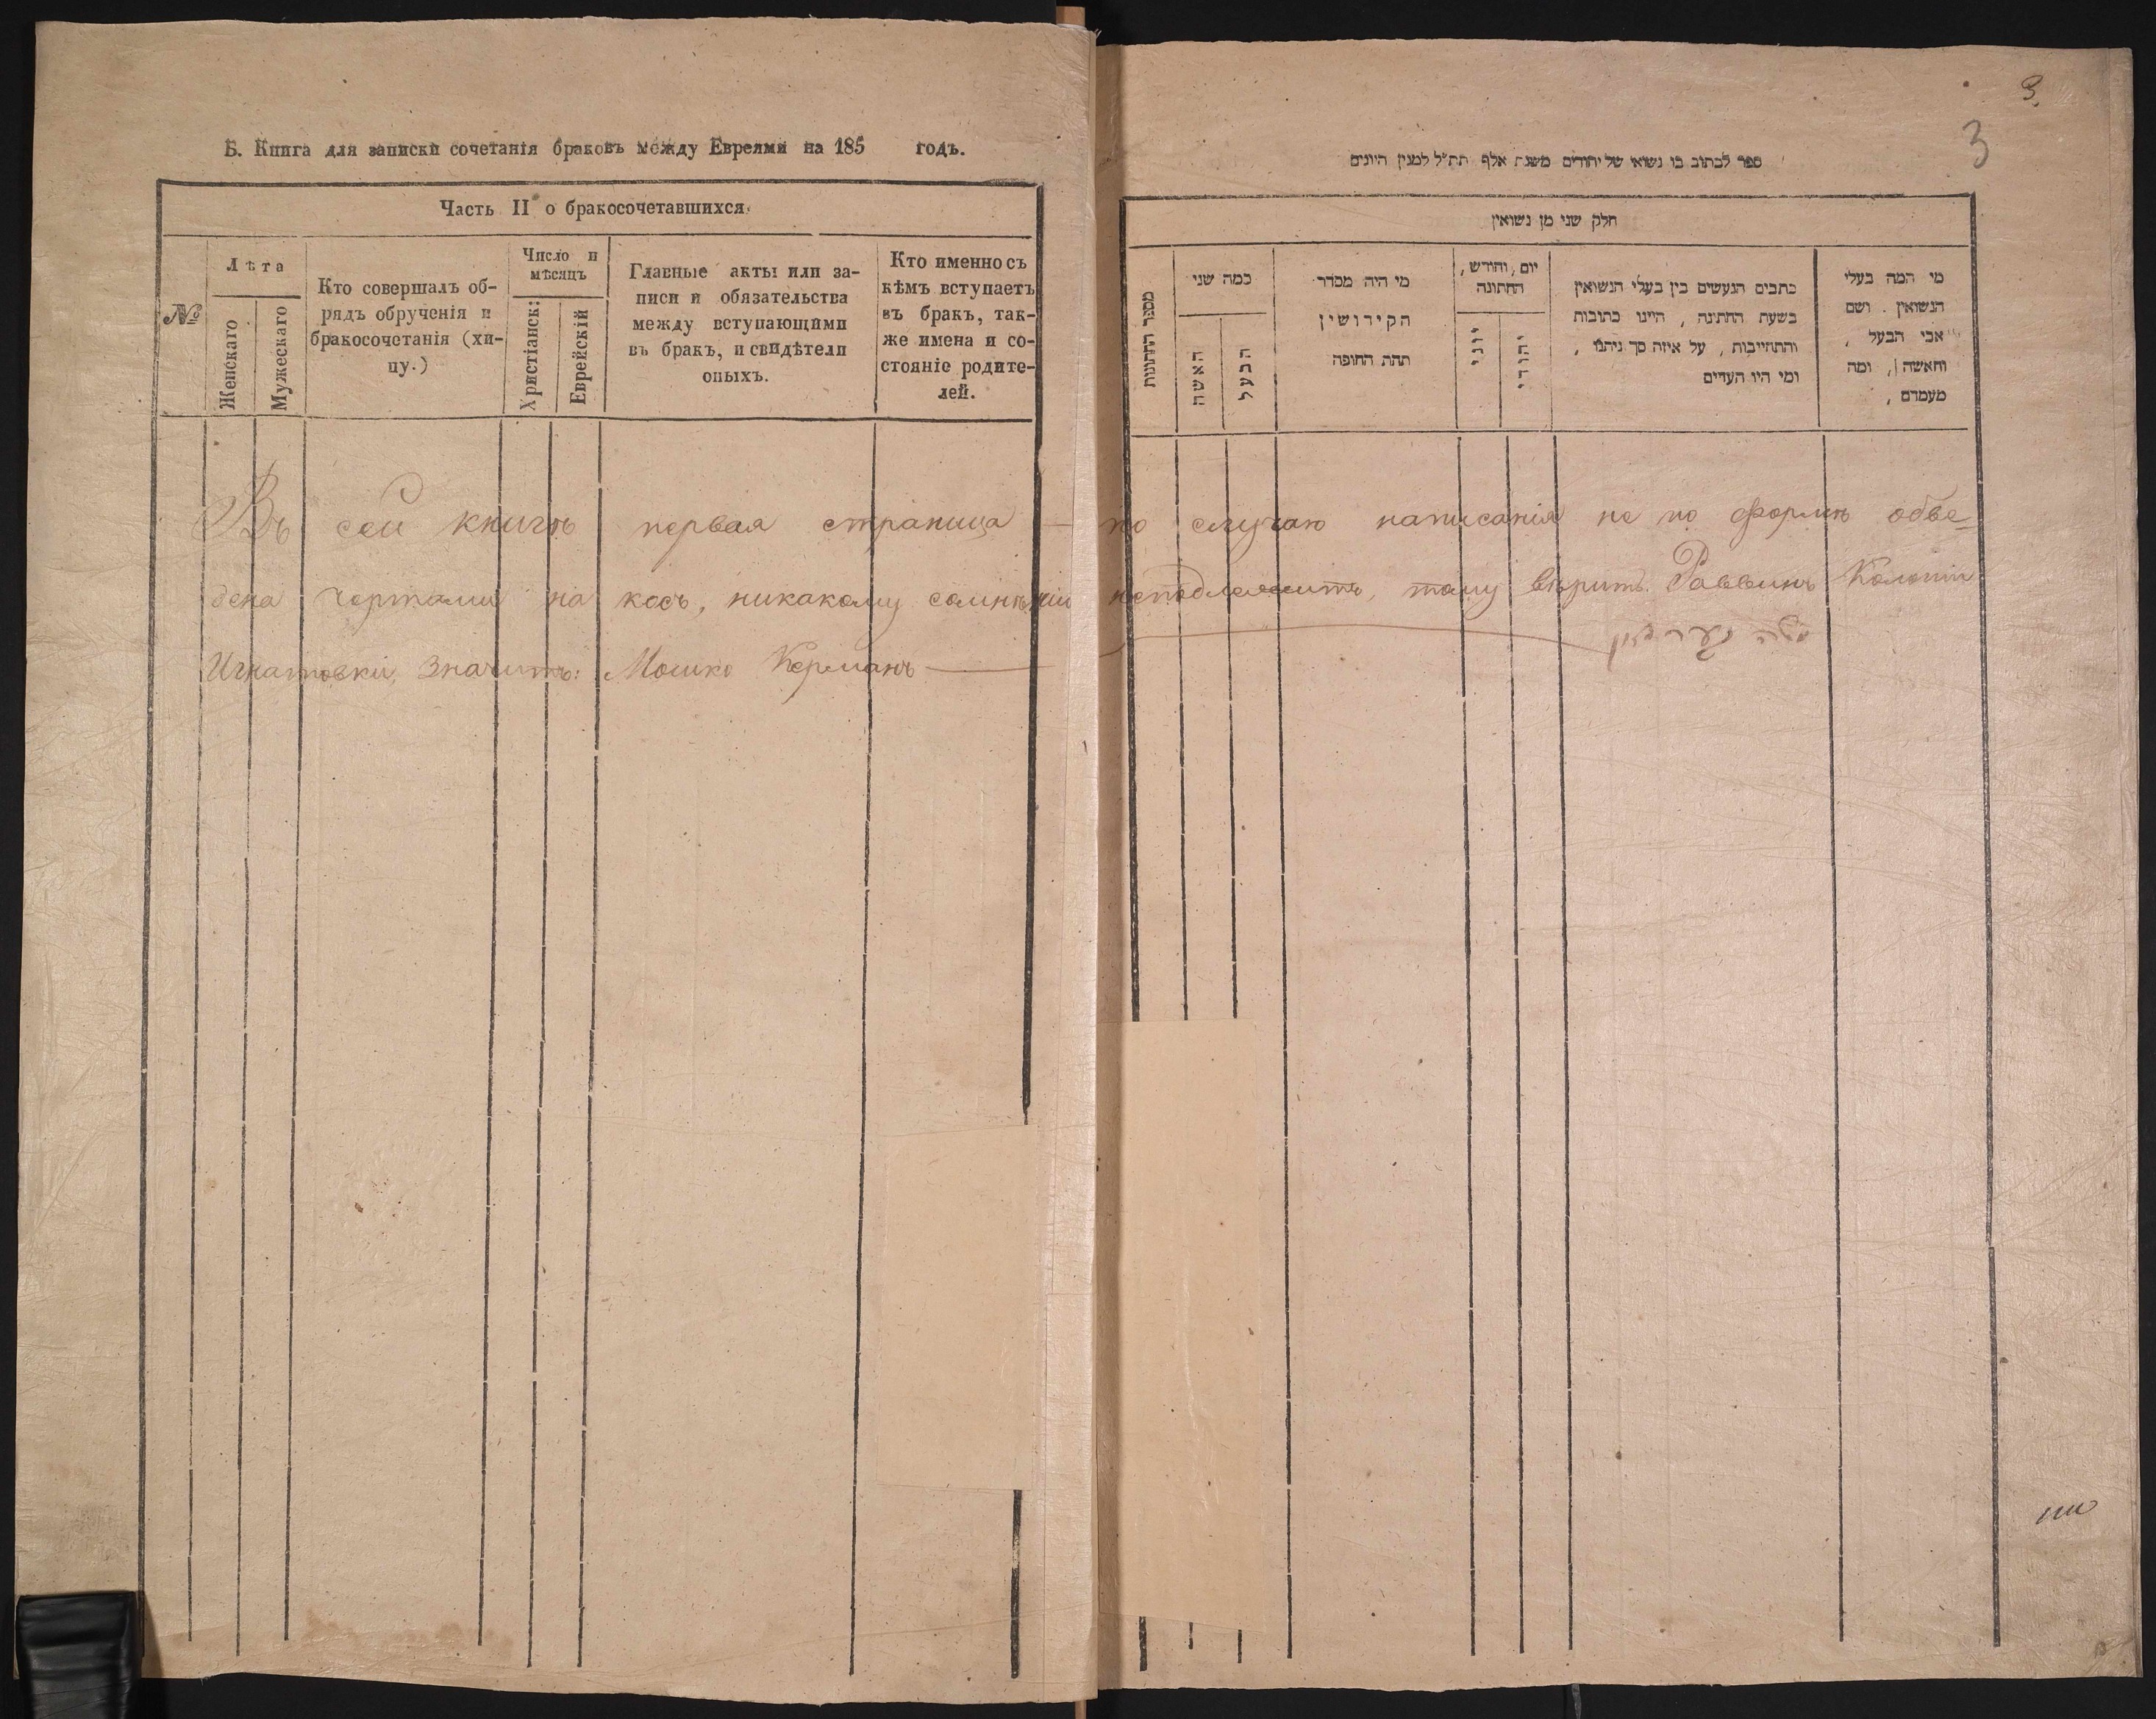 Б. Книга для записки сочетанія браковъ между Евреями на 185 годъ.
Часть II о бракосочетавшихся.
№
Лѣта
Женскаго
Мужескаго
Кто совершалъ об-
рядъ обрученія и
бракосочетанія (хи-
пу.)
Число и
мѣсяцъ
Христіанск:
Еврейскій
Главные акты или за-
писи и обязательства
между вступающими
въ бракъ, и свидѣтели
оныхъ.
Кто именно съ
кѣмъ вступаетъ
въ бракъ, так-
же имена и со-
стояніе родите-
лей.
3.
3
ספר לכתוב בו נשואי של יהודים משנת אלף תת״ל למנין היונים
חלק שני מן נשואין
מספר החתונות
כמה שני
האשה
הבעל
מי היה מסדר
הקידושין
תחת החופה
יום, וחודש,
החתונה
יוני
יהודי
כתבים הנעשים בין בעלי הנשואין
בשעת החתונה, היינו כתובות
והתחייבות, על איזה סך ניתנו,
ומי היו העדים
מי המה בעלי
הנשואין. ושם
אבי הבעל,
והאשה, ומה
מעמדם,
Въ сей книгѣ первая страница — по случаю написанія не по формѣ обве-
дена чертами на кось, никакому сомнѣнію неподлежитъ, тому вѣрить. Раввинъ Колоніи
Игнатовки, значитъ: Мошко Керманъ
משה קערמאן